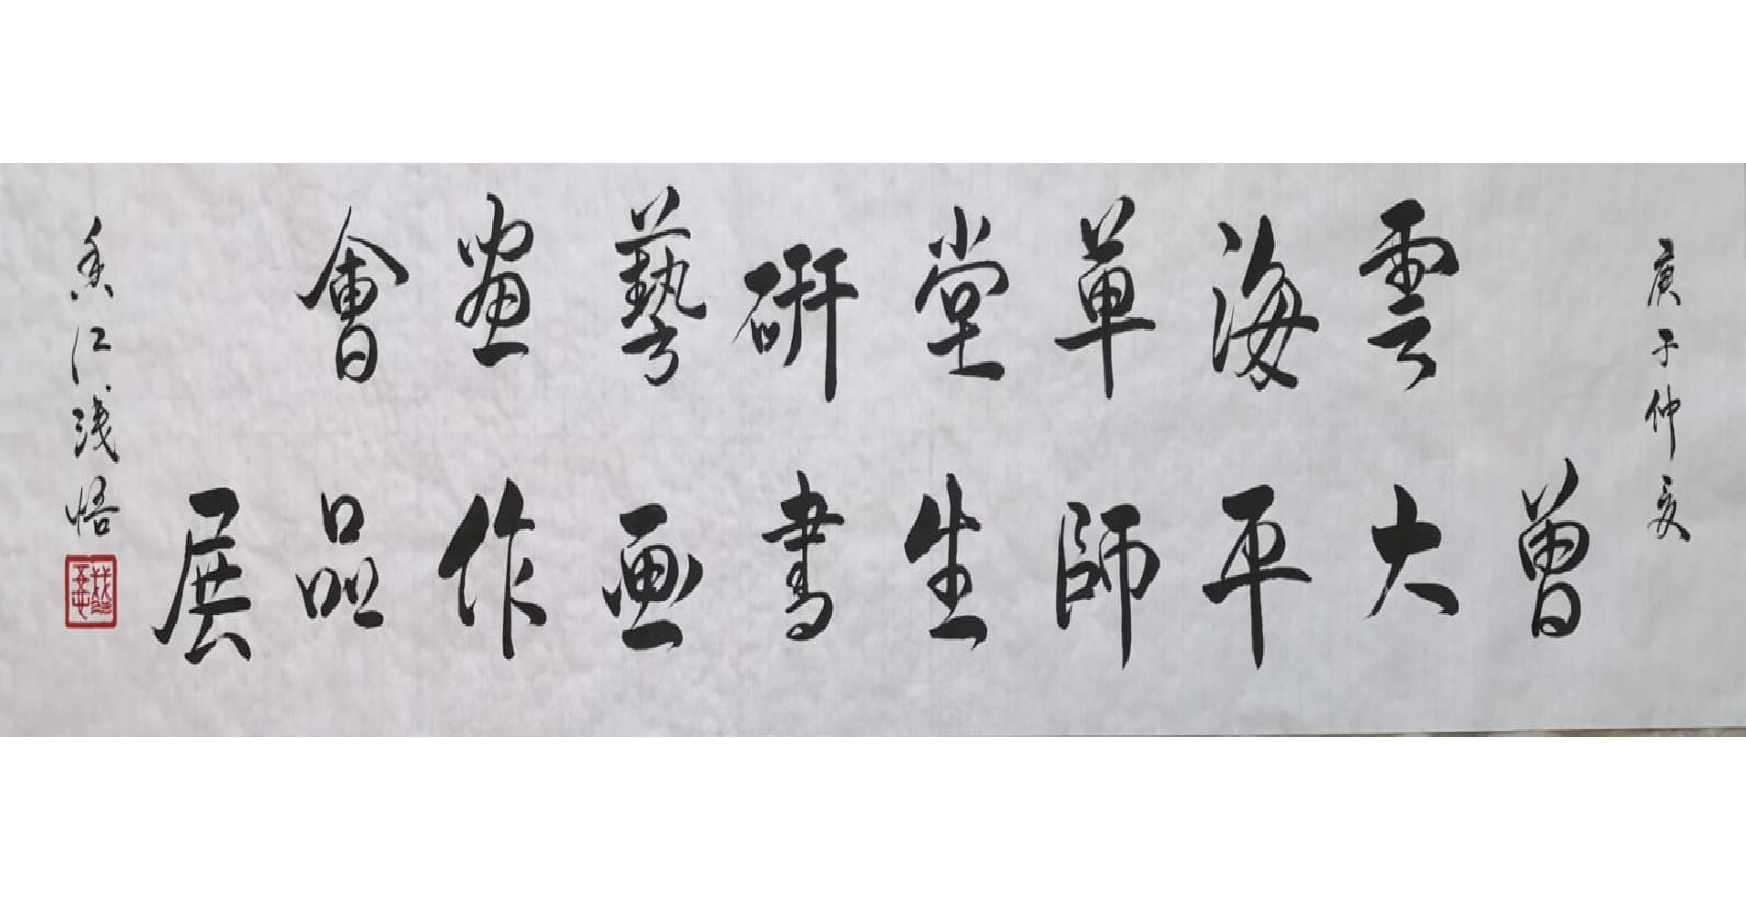 庚子仲夏
雲海草堂研藝畫會
曾大平師生書画作品展
香江浅悟